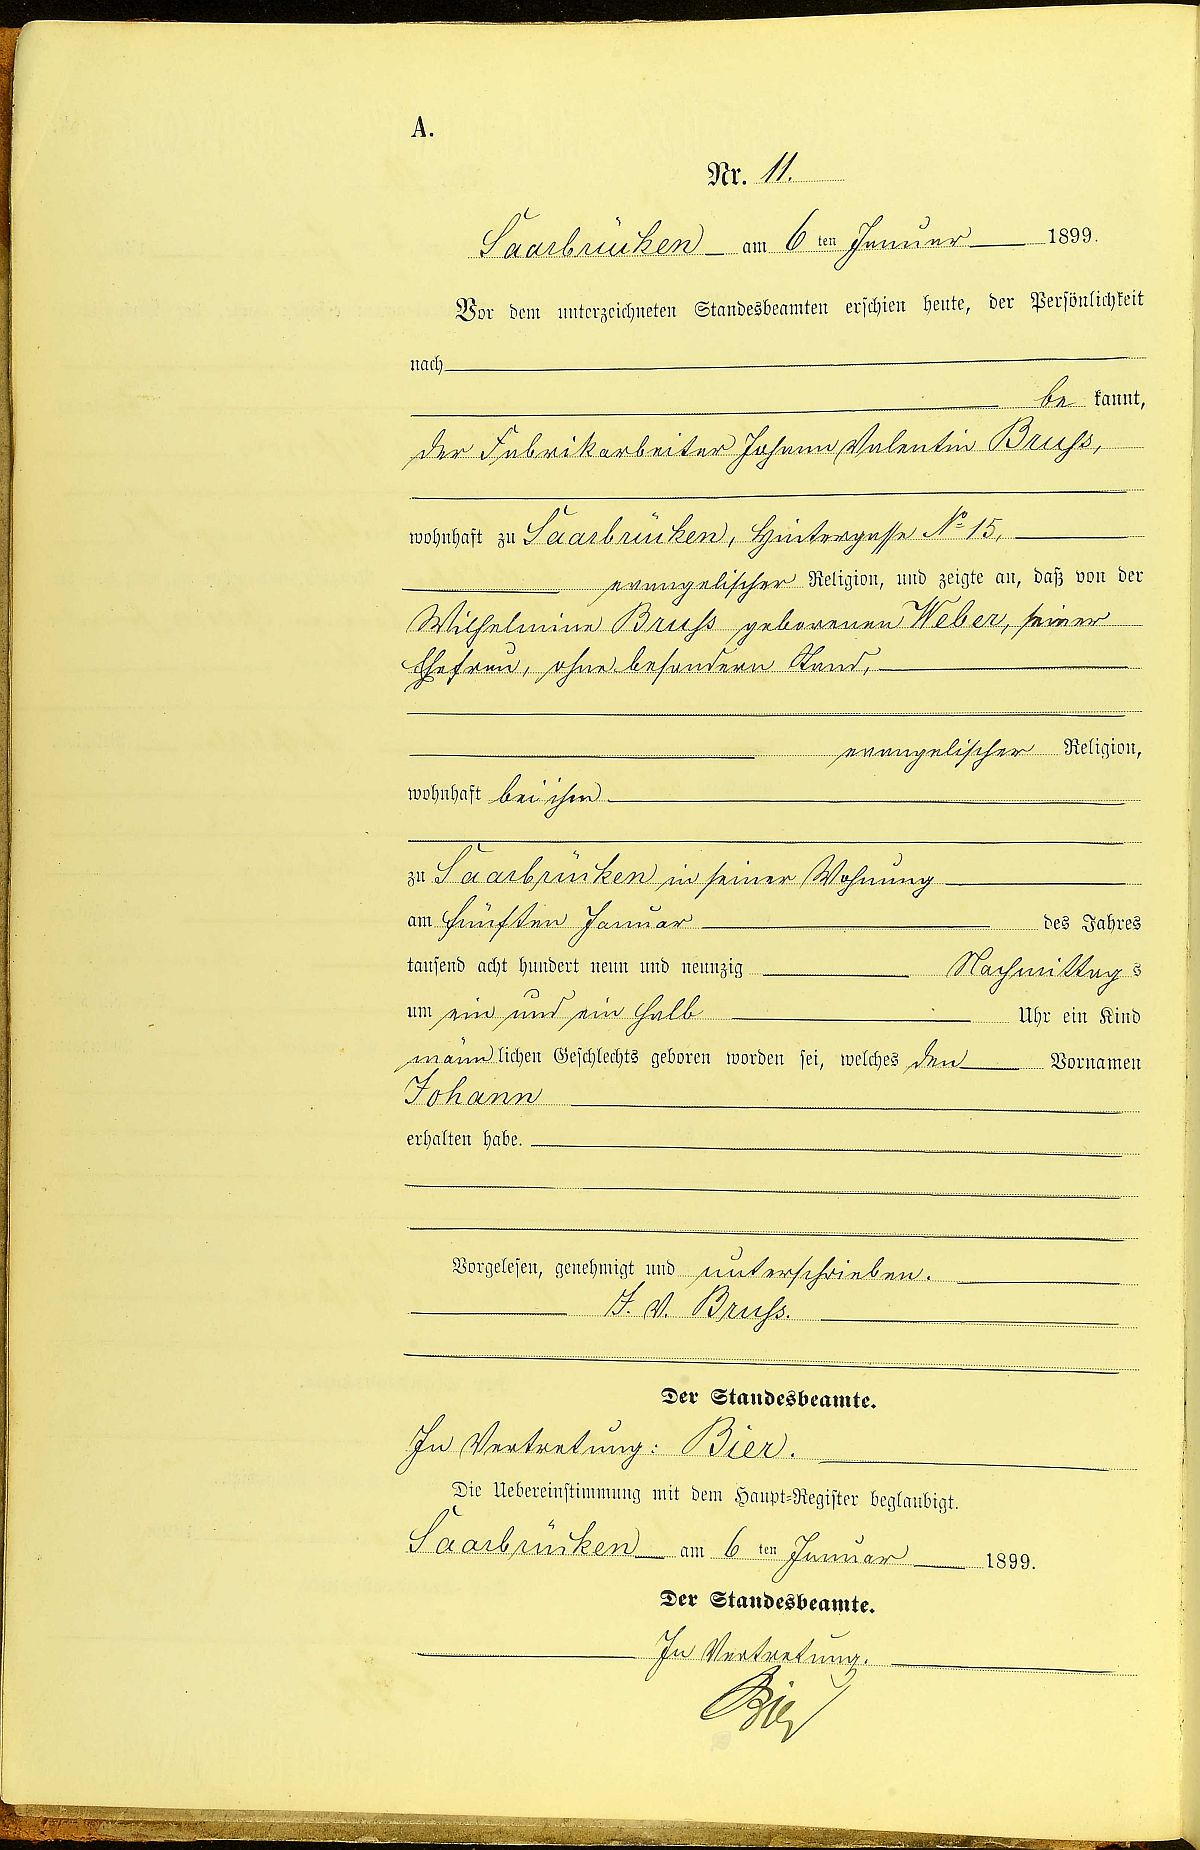 A.
Nr. 11.
Saarbrücken am 6ten Januar 1899.
Vor dem unterzeichneten Standesbeamten erschien heute, der Persönlichkeit
nach
be kannt,
der Fabrikarbeiter Johann Valentin Bruß,
wohnhaft zu Saarbrücken, Hintergasse No 15,
evangelischer Religion, und zeigte an, daß von der
Wilhelmine Bruß geborenen Weber, seiner
Ehefrau, ohne besondern Stand,
evangelischer Religion,
wohnhaft bei ihm
zu Saarbrücken in seiner Wohnung
am fünften Januar des Jahres
tausend acht hundert neun und neunzig Nachmittags
um ein und ein halb Uhr ein Kind
männlichen Geschlechts geboren worden sei, welches den Vornamen
Johann
erhalten habe.
Vorgelesen, genehmigt und unterschrieben.
J. V. Bruß.
Der Standesbeamte.
In Vertretung: Bier.
Die Uebereinstimmung mit dem Haupt-Register beglaubigt.
Saarbrücken am 6ten Januar 1899.
Der Standesbeamte.
In Vertretung.
Bier